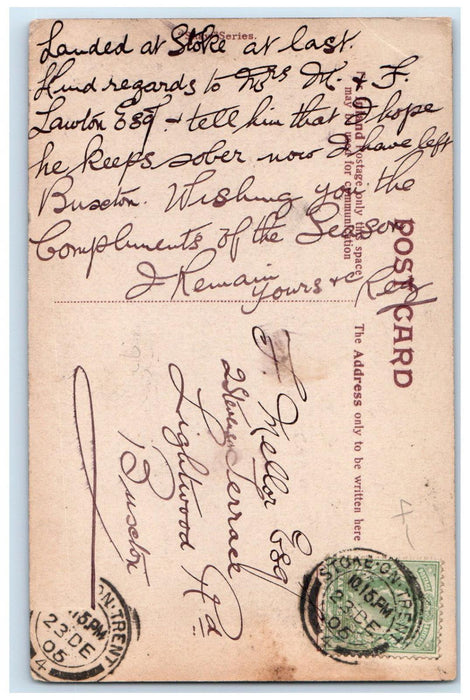 Series.
Landed at Stoke at last.
Kind regards to Mrs M. & F.
Lawton Esq. & tell him that I hope
he keeps sober now I have left
Buxton. Wishing you the
Compliments of the Season
I Remain
Yours & Reg
POST CARD
For Inland Postage only this space
may be used for communication
The Address only to be written here
J. Mellor Esq
2 Terrace
Lightwood Rd
Buxton
4-
STOKE-ON-TRENT
10.15PM
23 DE
05
N-TRENT
.15PM
23 DE
05
4